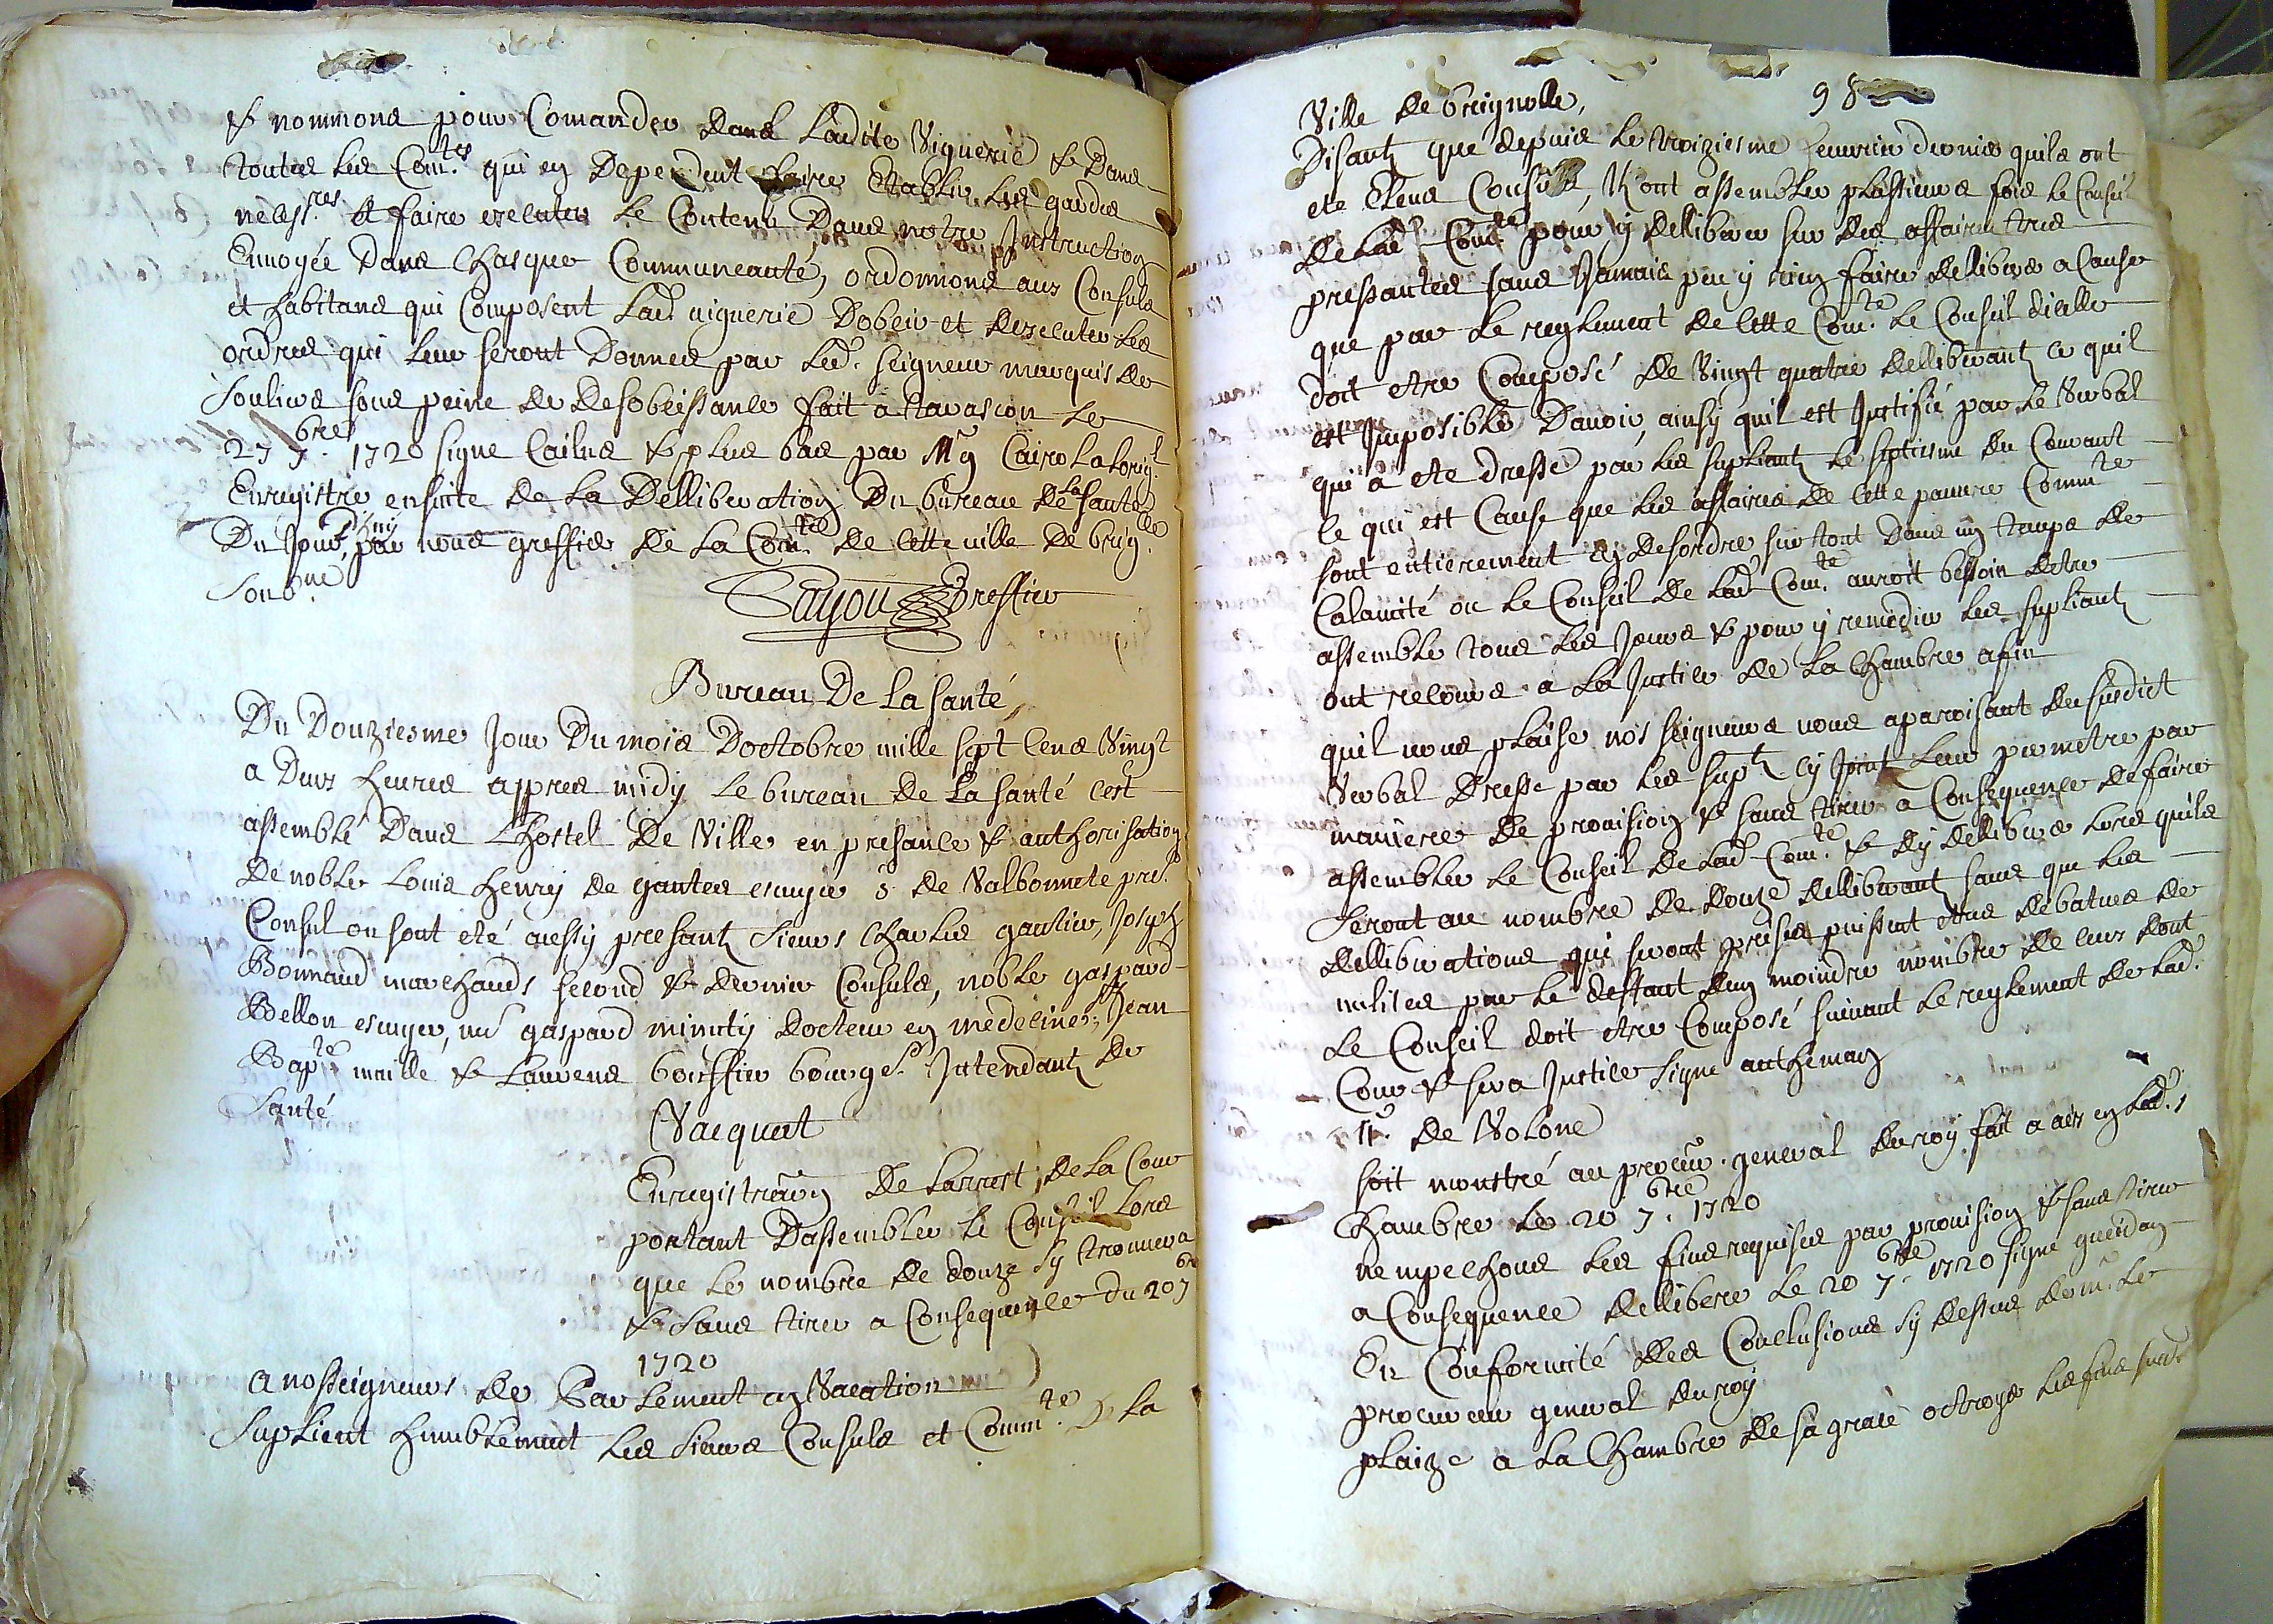 & nommons pour Comander dans Ladite Viguerie & Dans
toutes Les Com.tes qui en Dependent faire Etablir Les gardes
necess.res et faire executer Le Contenu Dans notre Instruction
Envoyée Dans Chasque Communeauté, ordonnons aux Consuls
et habitans qui Composent Lad. viguerie Dobeir et Dexecuter Les
ordres qui Leur seront Donnes par Led. seigneur marquis de
Souliers sous peine de Desobeissance fait a tarascon Le
27 7.bre 1720 signe Cailus & plus bas par Mg.r Cairo Lalorig.l
Enregistre ensuite de La Delliberation Du bureau De La santé
Du Jourd'huy par nous greffier De La Com.te De Cette ville De brig.lle
Soub.ne
Sayou Greffier
Bureau De La santé
Du Douziesme Jour Du mois Doctobre mille sept Cens Vingt
a Deux heures appres midy Le bureau De La santé cest
assemblé Dans Lhostel De Ville en presance & authorisation
De noble Louis henry de gantes escuyer s.r De Valbonnete pre.r
Consul ou sont eté aussy presants sieurs Charles gautier, Joseph
Bonnaud marchands second & dernier Consuls, noble gaspard
Bellon escuyer, m.r gaspard minuty Docteur en medecine, s.r Jean
Bap.te maille & Laurens boisffier bourg.s Intendants De
Santé
Vacquet
Enregistra.on De Larrest De La Cour
portant Dassembler Le Conseil Lors
que Le nombre De douze sy trouvera
& sans tirer a Consequence du 20 7.bre
1720
a nosseigneurs De Parlement en Vacation
Suplient humblement Les sieurs Consuls et Comm.te De La
98
Ville De brignolle,
Disants que depuis Le troiziesme feuvrier dernier quils ont
ete Eleus Consuls, Ils ont assembles plussieurs fois Le Conseil
De Lad. Com.te pour y delliberer sur des affaires tres
pressantes sans Jamais peu y rien faire deliberer a Cause
que par Le reglement De Cette Com.te Le Conseil dicelle
doit etre Composé De Vingt quatre delliberants ce quil
est Imposible Davoir, ainsy quil est Justifié par Le Verbal
qui a ete dressé par Les supliants Le septiesme Du Courant
Ce qui est Cause que Les affaires De Cette pauvre Comm.te
sont entierement en desordre sur tout Dans un temps de
Calamité ou Le Conseil De Lad. Com.te auroit besoin detre
assemble tous Les Jours & pour y remedier Les supliants
ont recours a La Justice De La Chambre afin
quil vous plaise nos seigneurs vous aparoisant du susdict
Verbal Dresse par Les sup.ts Cy Joint Leur permetre par
maniere De provision & sans tirer a Consequence De faire
assembler Le Conseil De Lad. Com.te & dy delliberer Lors quils
seront au nombre De Douze delliberants sans que Les
delliberations qui seront prises puissent etres debatues de
nulites par Le deffaut dun moindre nombre De ceux dont
Le Conseil doit etre Composé suivant Le reglement De Lad.
Cour & fera Justice signe anthiman
M.r De Volone
soit monstré au procur. general du roy fait a aix en Lad.
Chambre Le 20 7.bre 1720
nempechons Les fins requises par provision & sans tirer
a Consequence dellibere Le 20 7.bre 1720 signe gueidan
En Conformité des Conclusions sy dessus de m.r Le
procureur general du roy
plaize a La Chambre De sa grace octroyer Les fins susd.